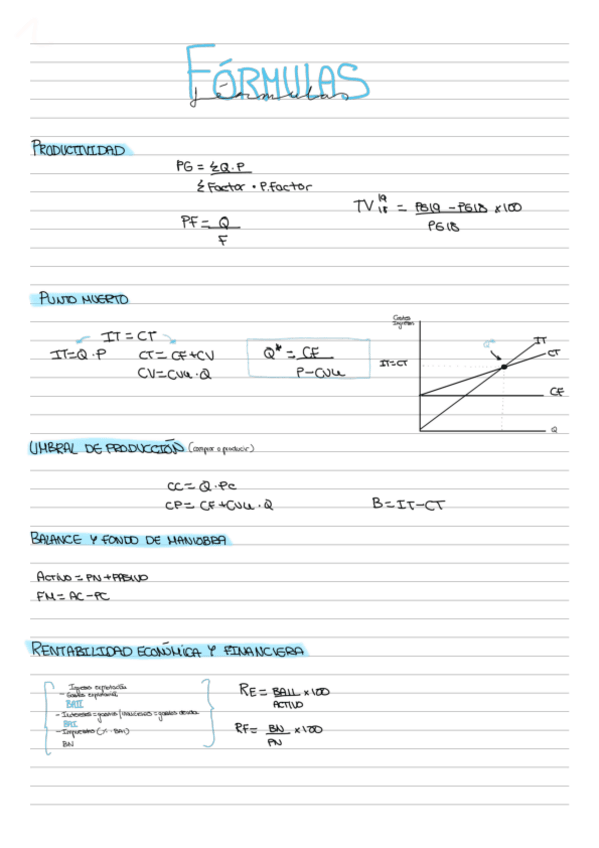 FÓRMULAS
fórmulas
PRODUCTIVIDAD
PG = ΣQ·P
Σ Factor · P.Factor
TV 19 18 = PG19 - PG18 x100
PG18
PF = Q
F
PUNTO MUERTO
IT = CT
IT=Q·P CT = CF+CV
CV=CVu·Q
Q* = CF
P-CVu
Costes
Ingresos
IT=CT
Q*
IT
CT
CF
Q
UMBRAL DE PRODUCCIÓN (comprar o producir)
CC = Q·PC
CP = CF+CVu·Q B=IT-CT
BALANCE Y FONDO DE MANIOBRA
ACTIVO = PN + PASIVO
FM = AC - PC
RENTABILIDAD ECONÓMICA Y FINANCIERA
Ingresos explotación
- Gastos explotación
BAII
- Intereses = gastos financieros = gastos deuda
BAI
- Impuestos (% · BAI)
BN
RE = BAII x100
ACTIVO
RF = BN x100
PN